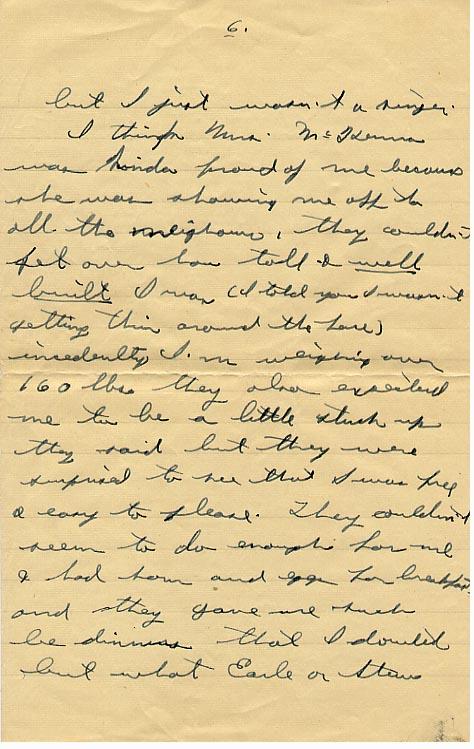 6.
but I just wasn't a singer.
I think Mrs. McKenna
was kinda proud of me because
she was showing me off to
all the neighbours, they couldn't
get over how tall & well
built I was (I told you I wasn't
getting thin around the here)
incedently I'm weighing over
160 lbs they also expected
me to be a little stuck up
they said but they were
surprised to see that I was free
& easy to please. They couldn't
seem to do enough for me
I had ham and eggs for breakfast
and they gave me such
big dinners that I doubted
but what Earle or Steve